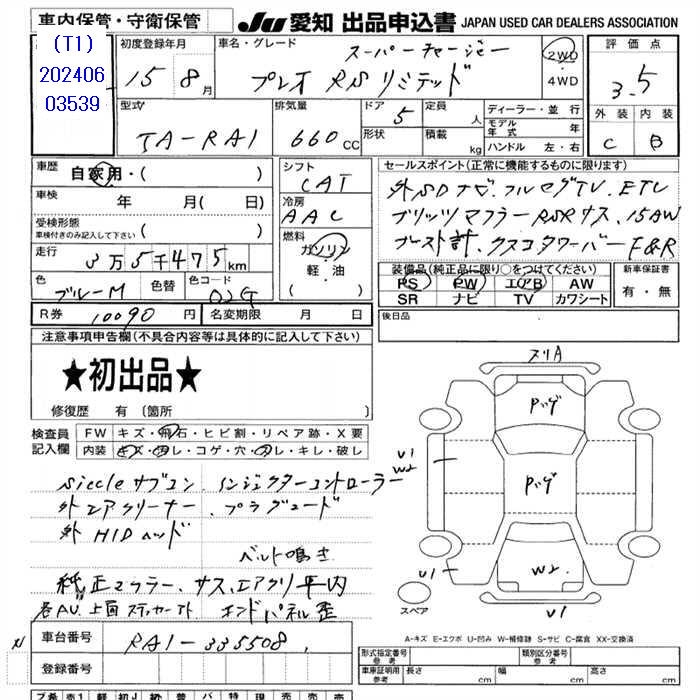 車内保管・守衛保管
JU 愛知 出品申込書 JAPAN USED CAR DEALERS ASSOCIATION
(T1)
202406
03539
初度登録年月
15年 8月
車名・グレード
スーパーチャージャー
プレオ RSリミテッド
2WD
・
4WD
評価点
3.5
外装 内装
C B
型式
TA-RA1
排気量
660 CC
ドア 5
形状
定員 人
積載 kg
ディーラー・並行
モデル年式 年
ハンドル 左・右
車歴
自家用・( )
車検
年 月( 日)
受検形態
車検付きのみ記入して下さい ( )
走行
3万5千475km
色
ブルーM
色替
色コード
02G
シフト
CAT
冷房
AAC
燃料
ガソリン
軽・油
( )
セールスポイント(正常に機能するものに限ります)
外SDナビ、フルセグTV、ETC
ブリッツマフラー RSRサス、15AW
ブースト計、クスコタワーバー F&R
装備品(純正品に限り○をつけてください)
PS PW エアB AW
SR ナビ TV カワシート
新車保証書
有・無
R券 10090 円 名変期限 月 日
後日品
注意事項申告欄(不具合内容等は具体的に記入して下さい)
★初出品★
修復歴 有 (箇所 )
検査員記入欄
FW キズ・飛石・ヒビ割・リペア跡・X要
内装 キズ・汚レ・コゲ・穴・スレ・キレ・破レ
siecleサブコン、インジェクターコントローラー
外エアクリーナー、プラグコード
外HIDヘッド
ベルト鳴き
純正マフラー、サス、エアクリ車内
エンドパネル歪
ヌリA
Pッゲ
U1
W2
Pッゲ
U1
W2
U1
スペア
A-キズ E-エクボ U-凹み W-補修跡 S-サビ C-腐食 XX-交換済
車台番号
RA1-335508
登録番号
形式指定番号 参考
類別区分番号 参考
車庫証明用 参考 長さ cm 幅 cm 高さ cm